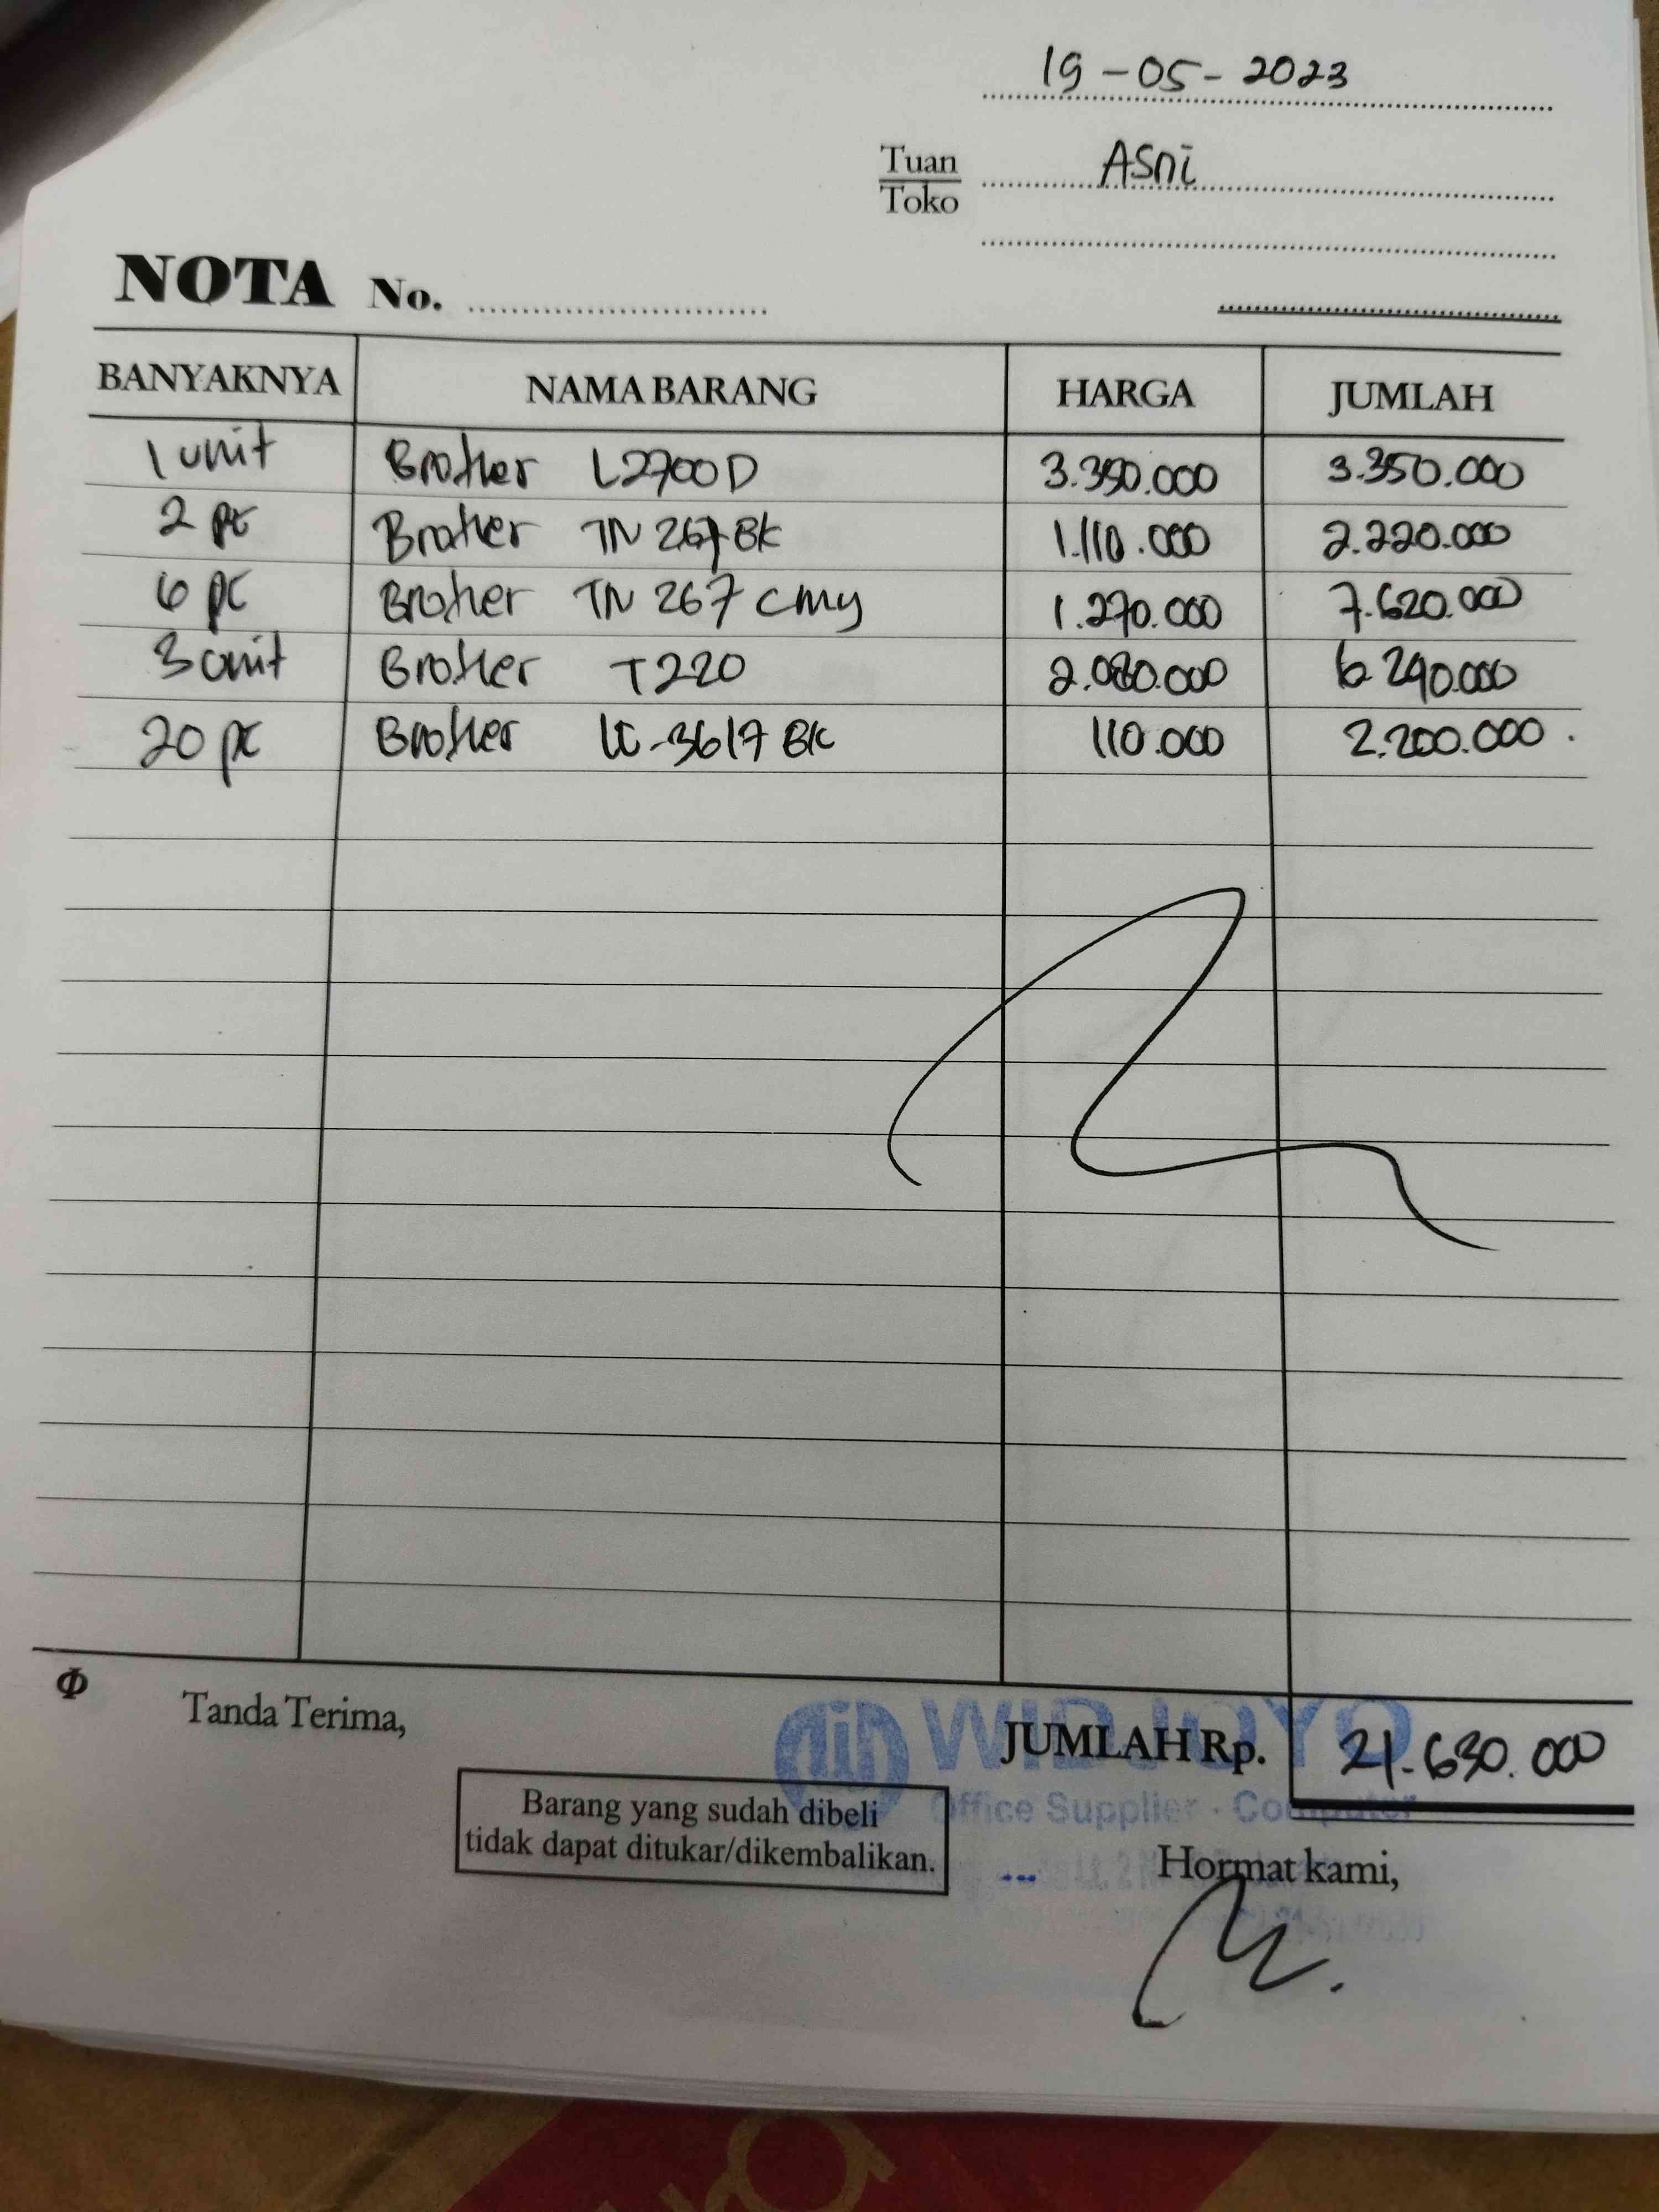 19-05-2023
Tuan
Toko
Asni
NOTA No.
BANYAKNYA NAMA BARANG HARGA JUMLAH
1 unit Brother L2700D 3.350.000 3.350.000
2 pc Brother TN 267 BK 1.110.000 2.220.000
6 pc Brother TN 267 cmy 1.270.000 7.620.000
3 unit Brother T220 2.080.000 6.240.000
20 pc Brother LC-3617 BK 110.000 2.200.000
Φ
Tanda Terima,
WIDJOYO
JUMLAH Rp. 21.630.000
Office Supplier - Computer
Barang yang sudah dibeli
tidak dapat ditukar/dikembalikan.
Hormat kami,